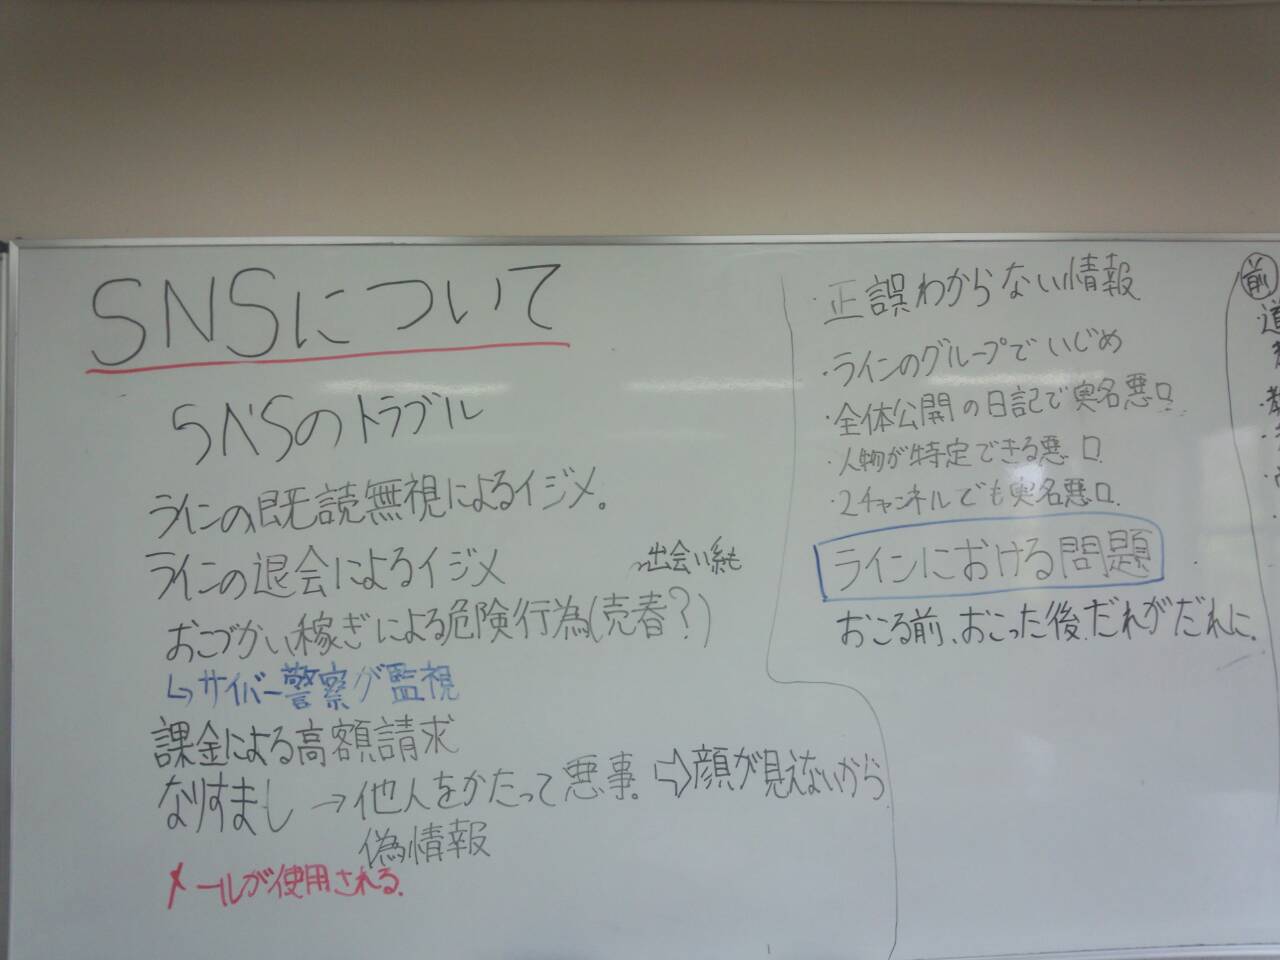 SNSについて
SNSのトラブル
ラインの既読無視によるイジメ。
ラインの退会によるイジメ
出会い系も
おこづかい稼ぎによる危険行為(売春?)
↳サイバー警察が監視
課金による高額請求
なりすまし→他人をかたって悪事。⇨顔が見えないから
偽情報
メールが使用される.
・正誤わからない情報
・ラインのグループでいじめ
・全体公開の日記で実名悪口
・人物が特定できる悪口
・2チャンネルでも実名悪口.
ラインにおける問題
おこる前、おこった後、だれがだれに.
前